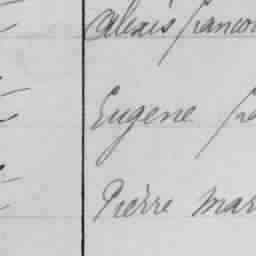 Alexis francoi
Eugene fra
Pierre mar